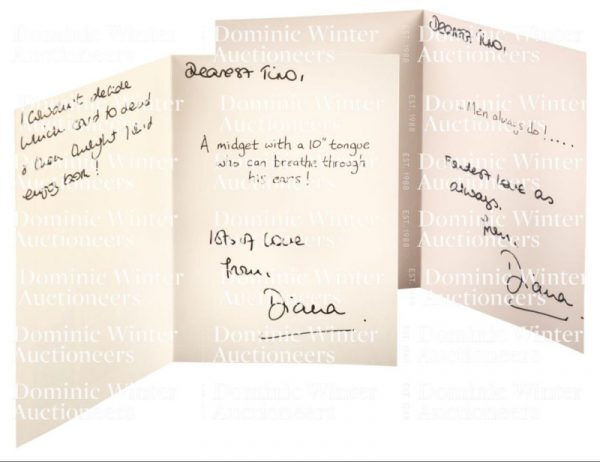 I couldn't decide
which card to send
so I
enjoy both!
Dearest Tino,
A midget with a 10" tongue
who can breathe through
his ears!
lots of love
from,
Diana
Dearest Tino,
...Men always do!.....
Fondest love as
always,
from,
Diana
Dominic Winter
Auctioneers
EST. 1988